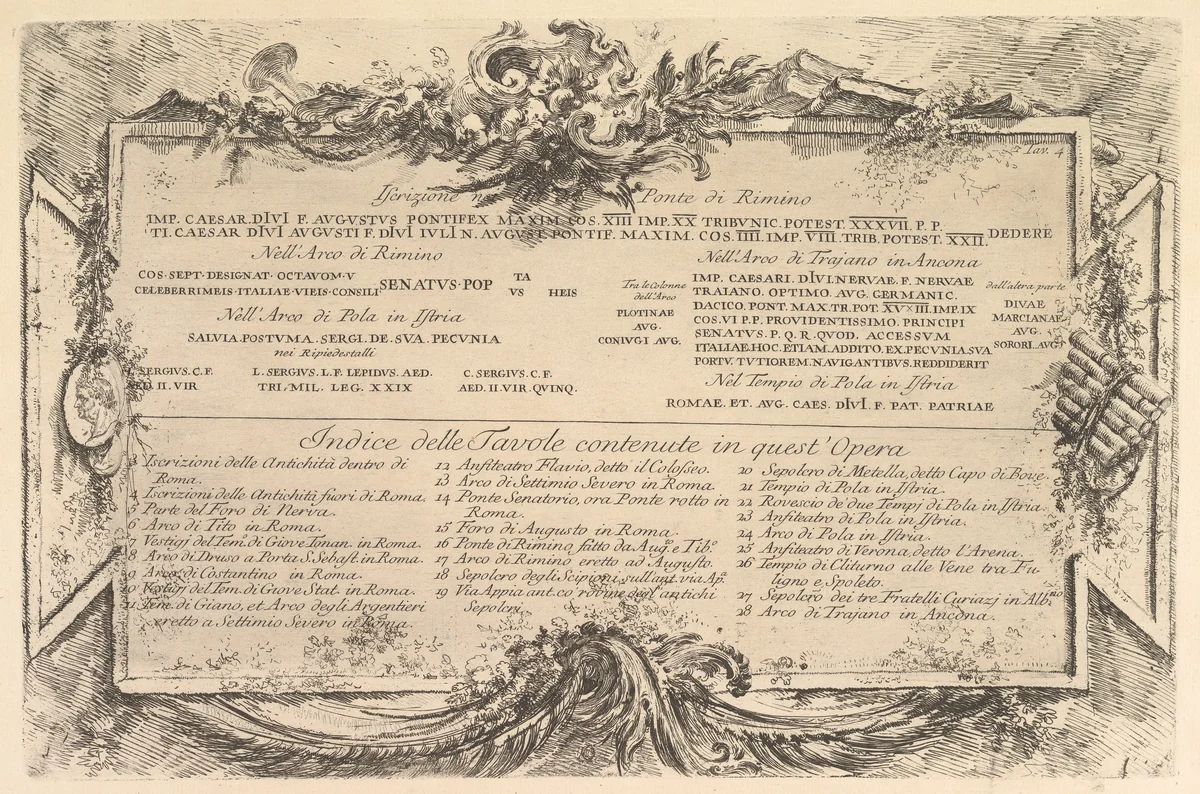 Tav. 4
Iscrizione Ponte di Rimino
IMP. CAESAR. DIVI F. AVGVSTVS PONTIFEX MAXIM. COS. XIII IMP. XX TRIBVNIC. POTEST. XXXVII. P. P.
TI. CAESAR DIVI AVGVSTI F. DIVI IVLI N. AVGVST. PONTIF. MAXIM. COS. IIII. IMP. VIII. TRIB. POTEST. XXII. DEDERE
Nell'Arco di Rimino
COS·SEPT·DESIGNAT·OCTAVOM·V
CELEBERRIMEIS·ITALIAE·VIEIS·CONSILI· SENATVS·POP TA
VS HEIS
Nell'Arco di Pola in Istria
SALVIA. POSTVMA. SERGI. DE. SVA. PECVNIA
nei Ripiedestalli
L. SERGIVS. C. F.
AED. II. VIR
L. SERGIVS. L. F. LEPIDVS. AED.
TRI. MIL. LEG. XXIX
C. SERGIVS. C. F.
AED. II. VIR. QVINQ.
Nell'Arco di Trajano in Ancona
Tra le Colonne
dell'Arco
PLOTINAE
AVG.
CONIVGI AVG.
IMP. CAESARI. DIVI. NERVAE. F. NERVAE
TRAIANO. OPTIMO. AVG. GERMANIC.
DACICO. PONT. MAX. TR. POT. XVXIII. IMP. IX
COS. VI P. P. PROVIDENTISSIMO. PRINCIPI
SENATVS. P. Q. R. QVOD. ACCESSVM
ITALIAE. HOC. ETIAM. ADDITO. EX. PECVNIA. SVA
PORTV. TVTIOREM. NAVIGANTIBVS. REDDIDERIT
dall'altra parte
DIVAE
MARCIANAE
AVG.
SORORI. AVG.
Nel Tempio di Pola in Istria
ROMAE. ET. AVG. CAES. DIVI. F. PAT. PATRIAE
Indice delle Tavole contenute in quest'Opera
3 Iscrizioni delle Antichità dentro di
Roma.
4 Iscrizioni delle Antichità fuori di Roma.
5 Parte del Foro di Nerva.
6 Arco di Tito in Roma.
7 Vestigj del Tem. di Giove Tonan. in Roma.
8 Arco di Druso a Porta S. Sebast. in Roma.
9 Arco di Costantino in Roma.
10 Vestigj del Tem. di Giove Stat. in Roma.
11 Tem. di Giano, et Arco degli Argentieri
eretto a Settimio Severo in Roma.
12 Anfiteatro Flavio, detto il Colosseo.
13 Arco di Settimio Severo in Roma.
14 Ponte Senatorio, ora Ponte rotto in
Roma.
15 Foro di Augusto in Roma.
16 Ponte di Rimino fatto da Aug. e Tib.º
17 Arco di Rimino eretto ad Augusto.
18 Sepolcro degli Scipioni sull'ant. via Ap.ª
19 Via Appia ant. co' rovine degl'antichi
Sepolcri.
20 Sepolcro di Metella, detto Capo di Bove.
21 Tempio di Pola in Istria.
22 Rovescio de due Tempj di Pola in Istria.
23 Anfiteatro di Pola in Istria.
24 Arco di Pola in Istria.
25 Anfiteatro di Verona detto l'Arena.
26 Tempio di Cliturno alle Vene tra Fu-
ligno e Spoleto.
27 Sepolcro dei tre Fratelli Curiazj in Alb.no
28 Arco di Trajano in Ancona.